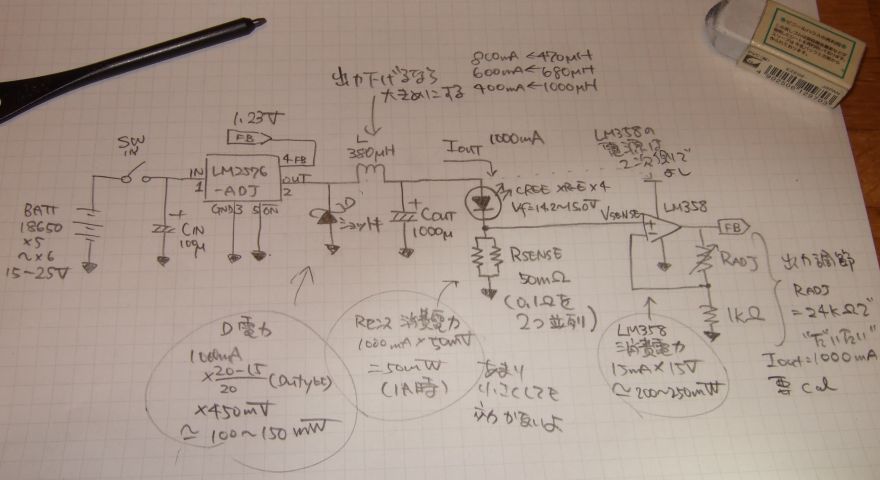 出力下げるなら
大きめにする
800mA ← 470μH
600mA ← 680μH
400mA ← 1000μH
1.23V
FB
SW
IN
IN
1
LM2576
-ADJ
4 FB
OUT
2
GND 3
5 ON
L
380μH
IOUT
1000mA
LM358の
電源は
2次側で
CREE XRE×4
Vf=14.2~15.0V
VSENSE
LM358
FB
BATT
18650
×5
~×6
15-25V
+
CIN
100μ
D
ショットキ
+
COUT
1000μ
RSENSE
50mΩ
(0.1Ωを
2つ並列)
RADJ
1kΩ
出力調節
RADJ
=24kΩで
Iout=1000mA
要 Cal
D電力
1000mA
×20-15/20 (Duty比)
×450mV
≃ 100~150mW
Rセンス消費電力
1000mA×50mV
=50mW
(1A時)
あまり
小さくしても
LM358
消費電力
15mA×15V
≃200~250mW